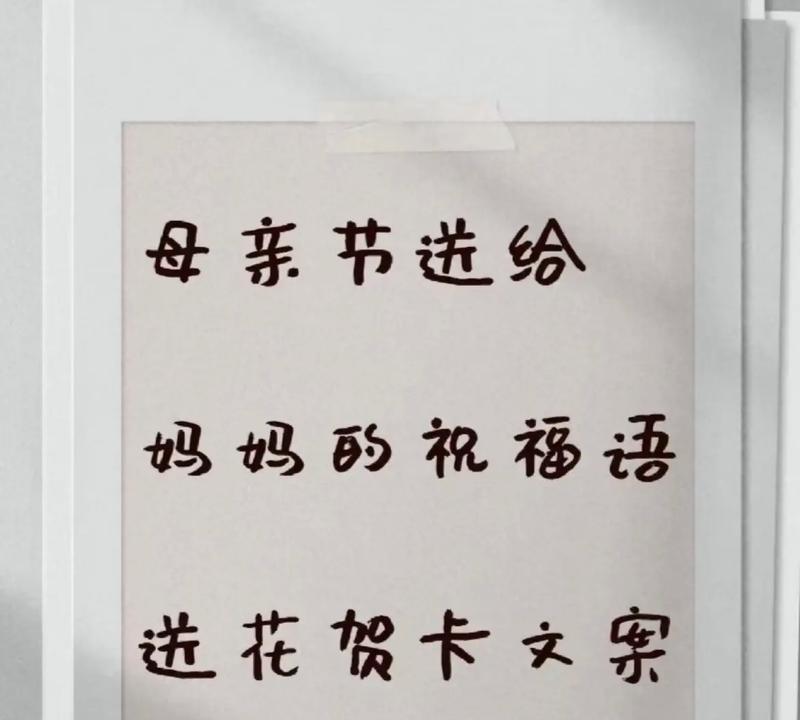 母亲节送给
妈妈的祝福语
送花贺卡文案